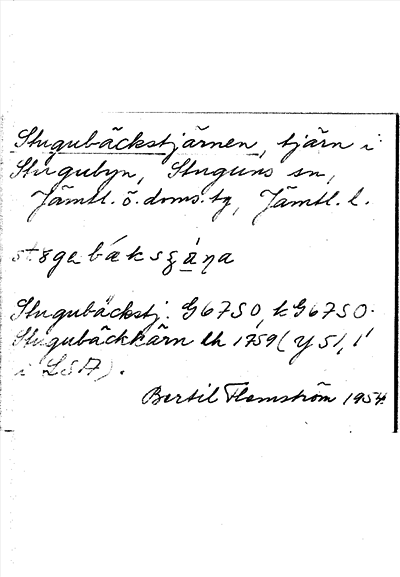 Stugubäckstjärnen, tjärn i
Stugubyn, Stuguns sn,
Jämtl. ö. doms. tg, Jämtl. l.
Stugubäckstj. G6750, kG6750.
Stugubäckkärn lh 1759 (Y51, 1
i LSA).
Bertil Flemström 1954.